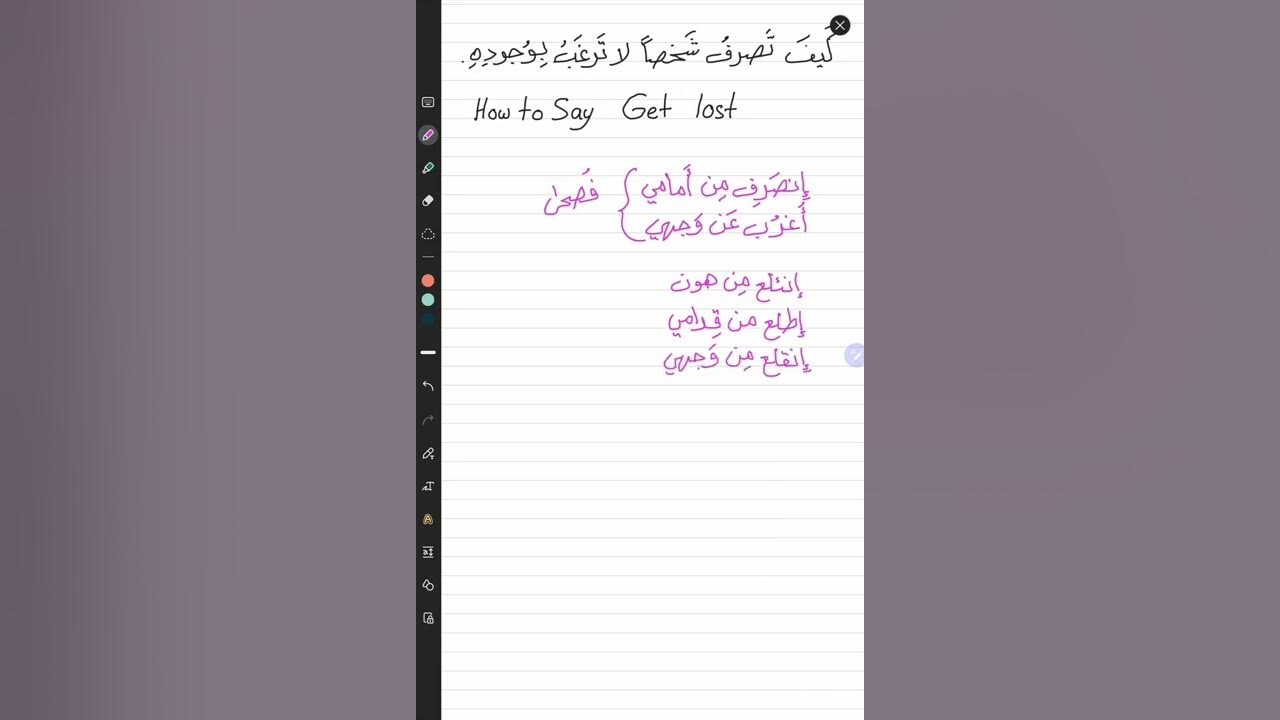 كَيفَ تَّصرفُ شَخصاً لا تَرغَبُ بِوُجودِهِ.
How to Say Get lost
إِنصَرِف مِن أَمامي } فُصحى
أَغرُب عَن وَجهي
إنئلع مِن هون
إطلع من قِدامي
إنقلع مِن وَجهي